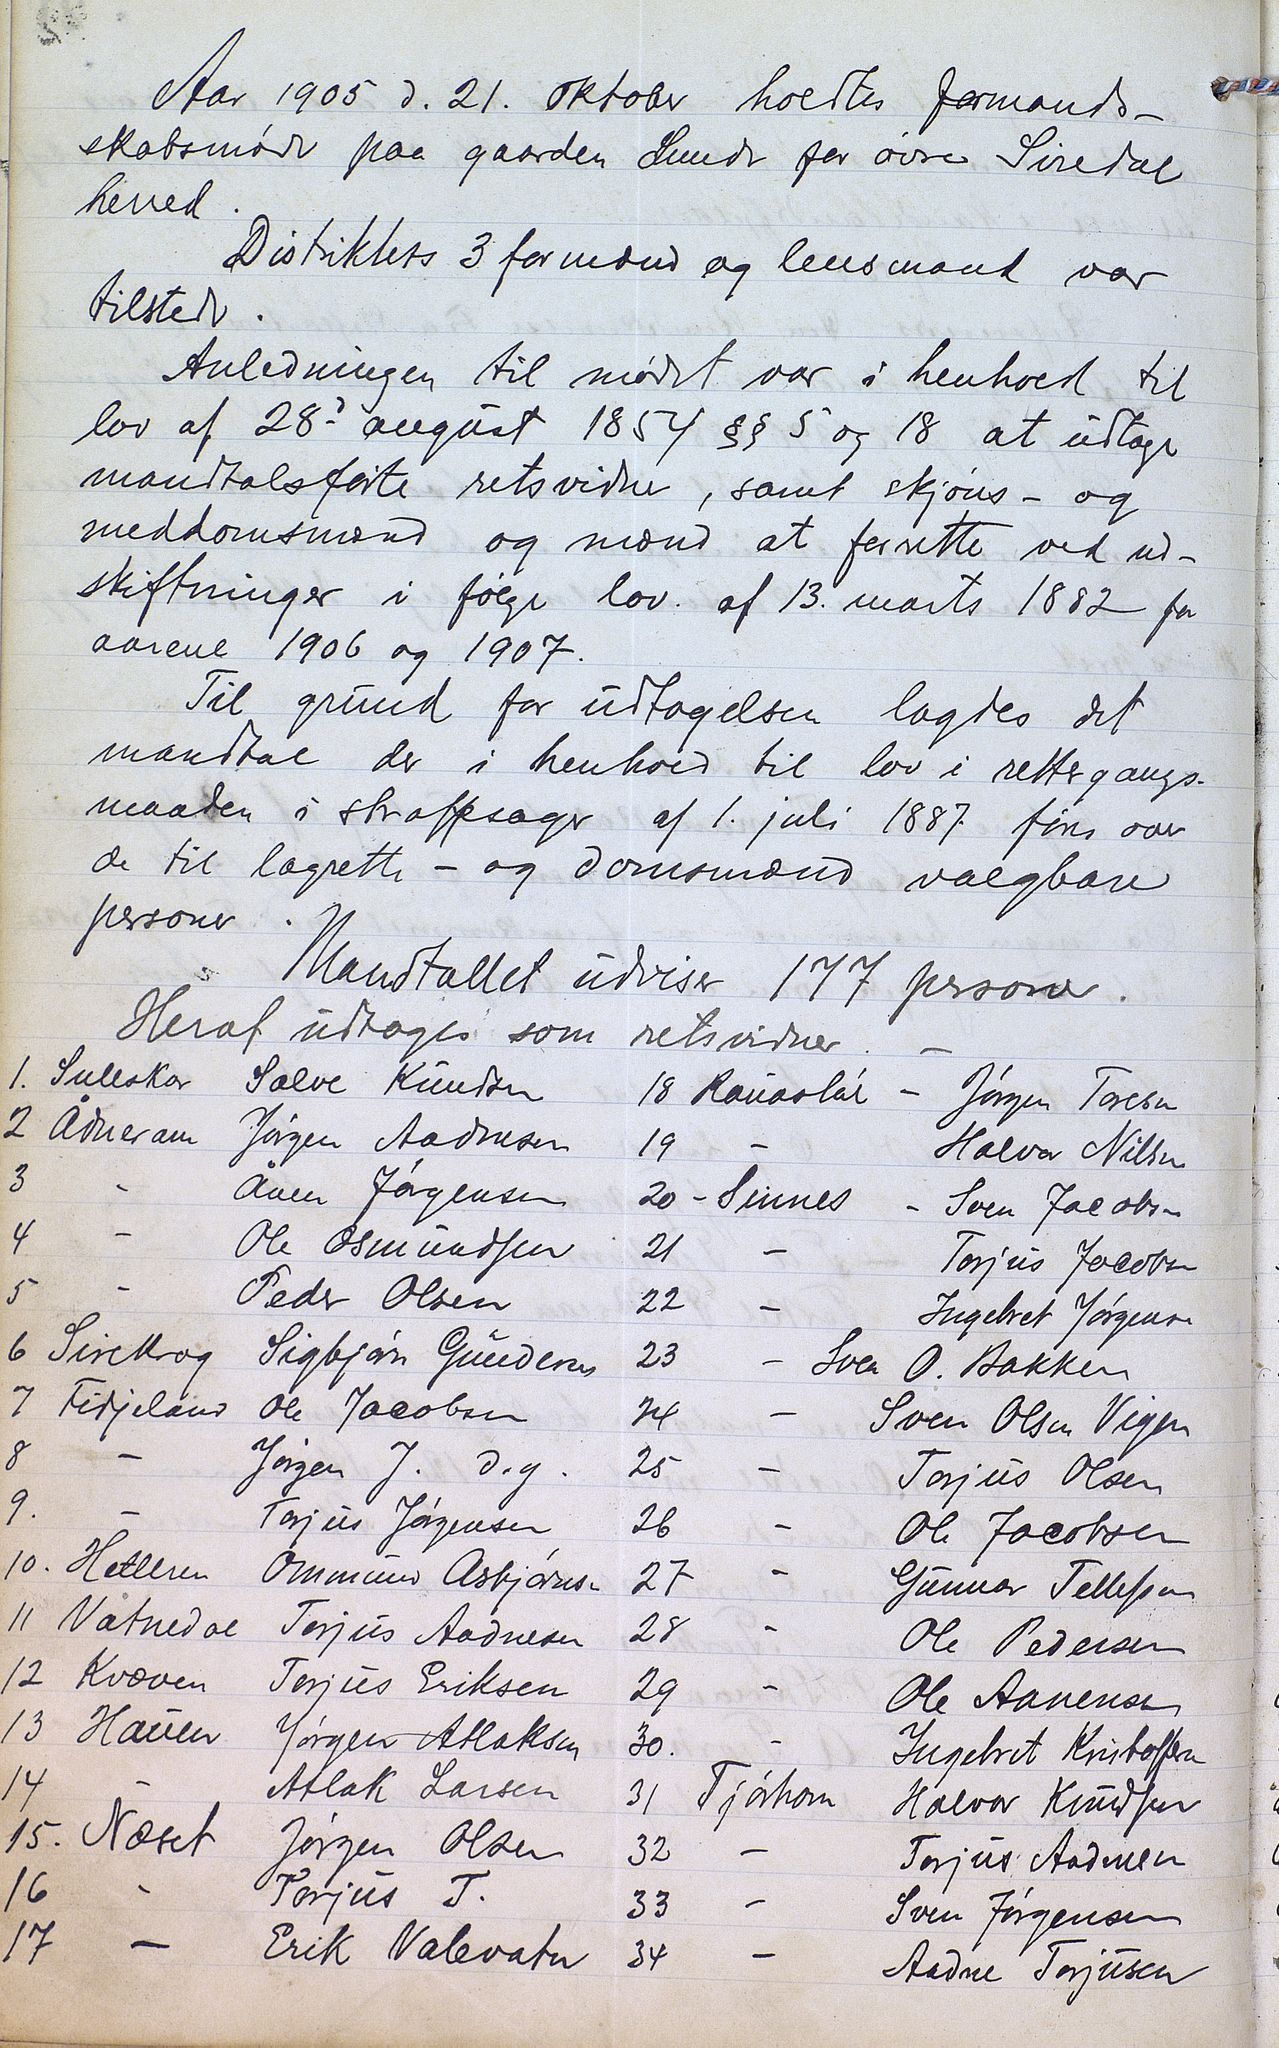 Aar 1905 d. 21. oktober holdtes formand-
skabsmøde paa gaarden Lunde for øvre Siredal
herred.
Distriktets 3 formænd og lensmand var
tilstede.
Anledningen til mødet var i henhold til
lov af 28d august 1854 §§ 5 og 18 at udtage
mandtalsførte retsvidner, samt skjøns- og
meddomsmænd og mænd at forrette ved ud-
skiftninger i følge lov. af 13. marts 1882 for
aarene 1906 og 1907.
Til grund for udtagelsen lagdes det
mandtal der i henhold til lov i rettergangs-
maaden i straffesager af 1. juli 1887 føres over
de til lagrette- og domsmænd valgbare
personer.
Mandtallet udviser 177 personer.
Heraf udtages som retsvidner. –
1. Suleskar Salve Knudsen
2 Ådneram Jørgen Aadnesen
3 - Ånen Jørgensen
4 - Ole Osmundsen
5 - Peder Olsen
6 Sirekrog Sigbjørn Gundersen
7 Fidjeland Ole Jacobsen
8 - Jørgen J. d.y.
9. - Torjus Jørgensen
10. Helleren Ommund Asbjørnsen
11 Vatnedal Torjus Aadnesen
12 Kvæven Torjus Eriksen
13 Haugen Jørgen Atlaksen
14 - Atlak Larsen
15. Næset Jørgen Olsen
16 - Torjus T.
17 - Erik Valevatn
18 - Jørgen Toresen
19 - Halvor Nilsen
20 - Sinnes - Sven Jacobsen
21 - Torjus Jacobsen
22 - Ingebret Jørgensen
23 - Sven O. Bakken
24 - Sven Olsen Vigen
25 - Torjus Olsen
26 - Ole Jacobsen
27 - Gunnar Tellefsen
28 - Ole Pedersen
29 - Ole Aanensen
30. - Ingebret Kristoffersen
31 Tjørhom Halvor Knudsen
32 - Torjus Aadnesen
33 - Sven Jørgensen
34 - Aadne Torjusen